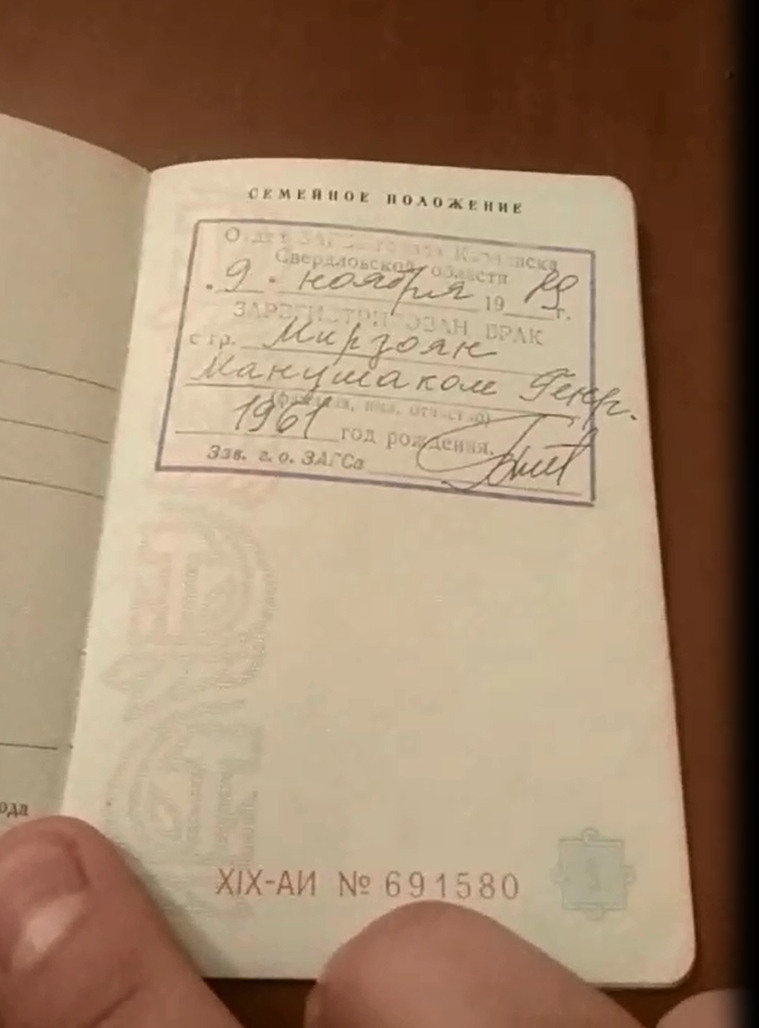 СЕМЕЙНОЕ ПОЛОЖЕНИЕ
Отдел ЗАГС
Свердловской области
9 ноября 1989 г.
ЗАРЕГИСТРИРОВАН БРАК
с гр. Мирзоян
Манушаком Генр.
(фамилия, имя, отчество)
1961 год рождения.
Зав. г. о. ЗАГСа
ода
XIX-АИ № 691580